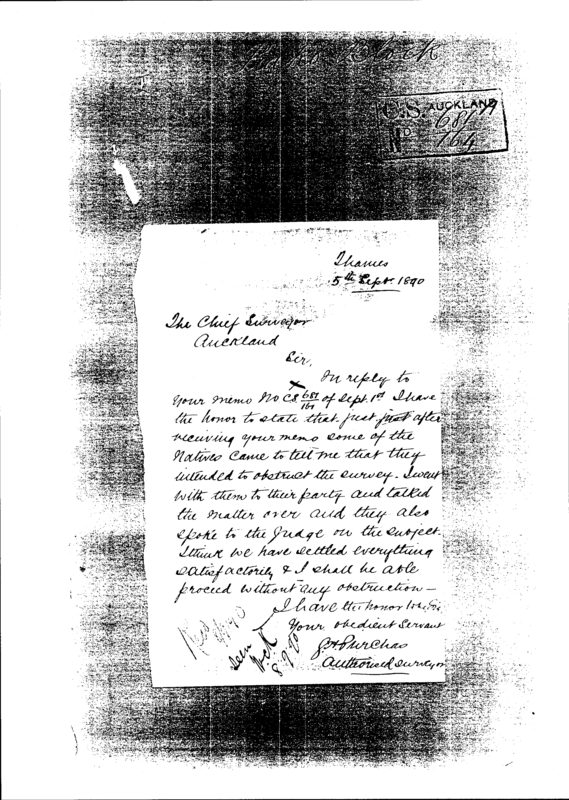 Block
C.S. AUCKLAND
No 687/164
Thames
5th Sept 1890
The Chief Surveyor
Auckland
Sir,
In reply to
your memo No CS 687/164 of Sept. 1st I have
the honor to state that just just after
receiving your memo some of the
Natives came to tell me that they
intended to obstruct the survey. I went
with them to their party and talked
the matter over and they also
spoke to the Judge on the subject.
I think we have settled everything
satisfactorily & I shall be able
proceed without any obstruction —
I have the honor to be, Sir
Your obedient Servant
G H Purchas
Authorised surveyor
Seen
8.9.90